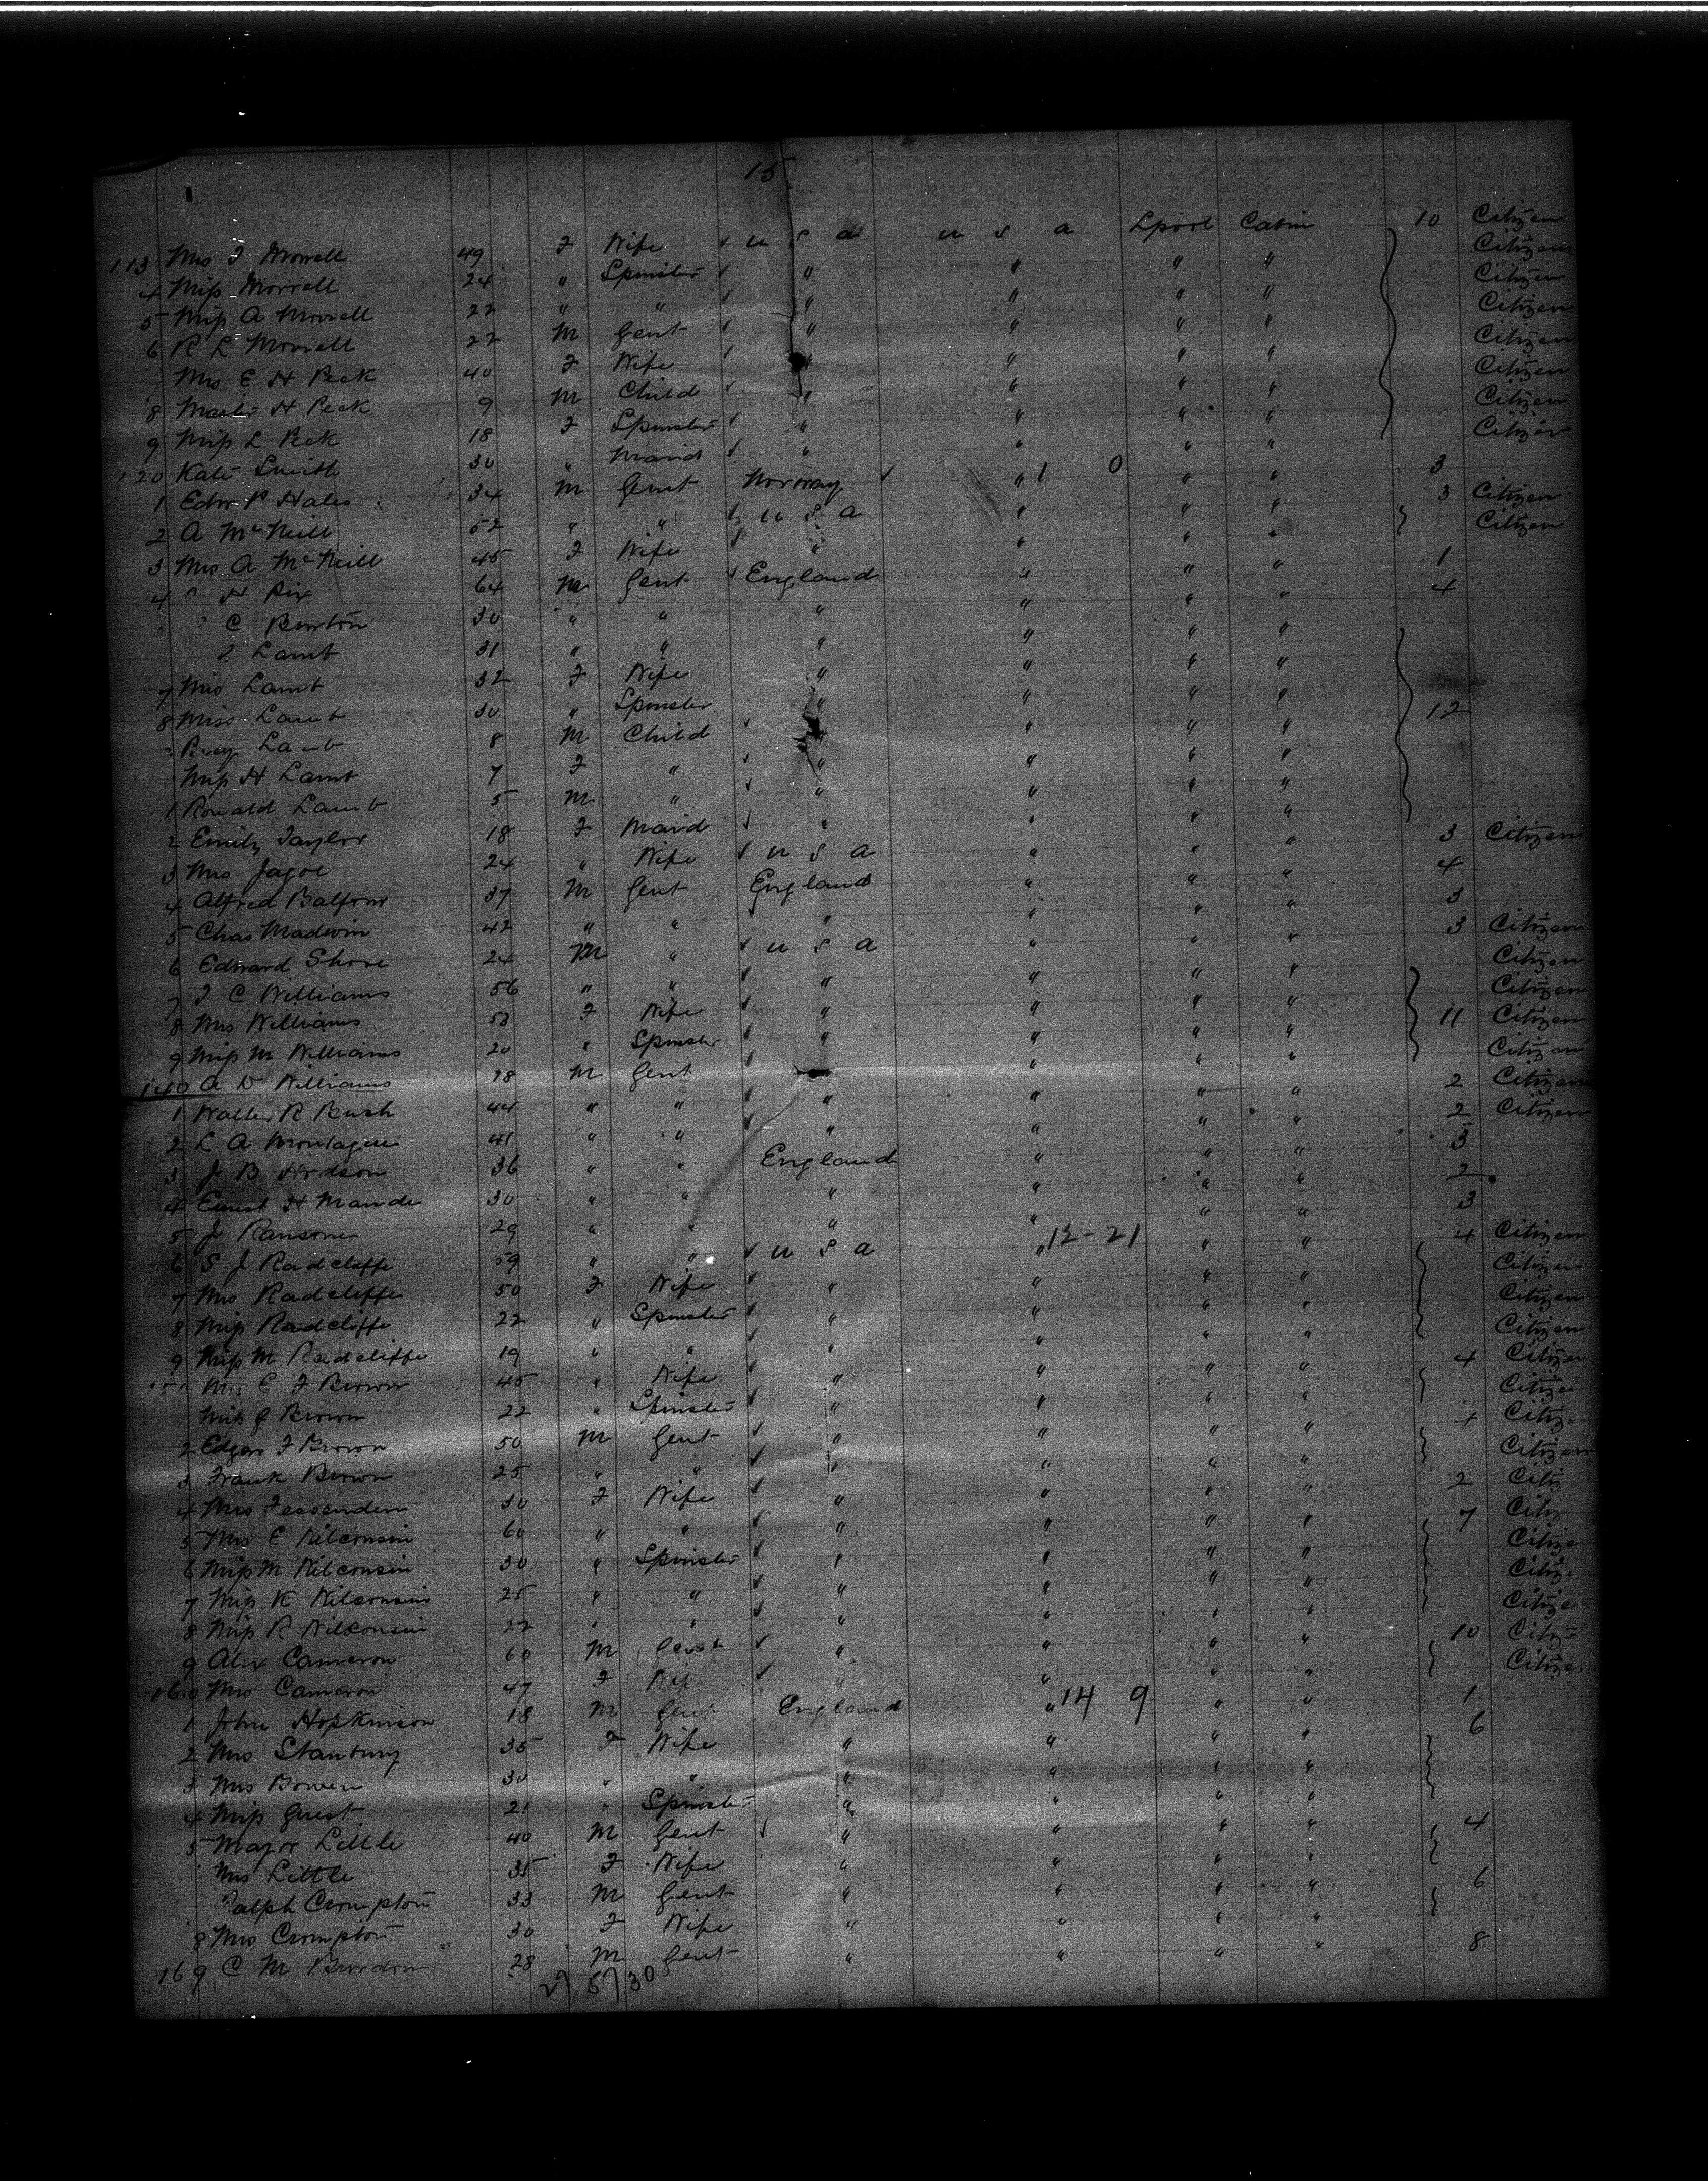 15
113 Mrs F Morrell 49 F Wife ✓ U S A U S A Lpool Cabin 10 Citizen
4 Miss Morrell 24 " Spinster ✓ " " " " Citizen
5 Miss A Morrell 22 " " ✓ " " " " Citizen
6 R L Morrell 22 M Gent ✓ " " " " Citizen
Mrs E H Peck 40 F Wife ✓ " " " " Citizen
8 Master H Peck 9 M Child ✓ " " " " Citizen
9 Miss L Peck 18 F Spinster ✓ " " " " Citizen
120 Kate Smith 30 " Maid ✓ " " " " Citizen
1 Edw P Hales 34 M Gent Norway ✓ " 1 0 " " 3
2 A McNeill 52 " " ✓ U S A " " " 3 Citizen
3 Mrs A McNeill 45 F Wife ✓ " " " " Citizen
4 " H Rix 64 M Gent ✓ England " " " 1
" C Burton 30 " " " " " " 4
Lamb 31 " " " " " "
7 Mrs Lamb 32 F Wife " " " "
8 Miss Lamb 30 " Spinster " " " " 12
Percy Lamb 8 M Child ✓ " " " "
Miss H Lamb 7 F " ✓ " " " "
1 Ronald Lamb 5 M " ✓ " " " "
2 Emily Taylor 18 F Maid ✓ " " " "
3 Mrs Jagoe 24 " Wife ✓ U S A " " " 3 Citizen
4 Alfred Balfour 37 M Gent England " " " 4
5 Chas Madwin 42 " " " " " " 3
6 Edward Shore 24 M " ✓ U S A " " " 3 Citizen
7 J C Williams 56 " " ✓ " " " " Citizen
8 Mrs Williams 53 F Wife ✓ " " " " Citizen
9 Miss M Williams 20 " Spinster ✓ " " " " 11 Citizen
140 A D Williams 18 M Gent ✓ " " " " Citizen
1 Walter R Bush 44 " " ✓ " " " " 2 Citizen
2 L A Montague 41 " " ✓ " " " " 2 Citizen
3 J B Hodson 36 " " England " " " 3
4 Ernest H Maude 30 " " " " " " 2
5 J Ransome 29 " " " " " " 3
6 S J Radcliffe 59 " " ✓ U S A " 12-21 " " 4 Citizen
7 Mrs Radcliffe 50 F Wife ✓ " " " " Citizen
8 Miss Radcliffe 22 " Spinster ✓ " " " " Citizen
9 Miss M Radcliffe 19 " " ✓ " " " " Citizen
Mrs E F Brown 45 " Wife ✓ " " " " 4 Citizen
Miss G Brown 22 " Spinster ✓ " " " " Citize
2 Edgar F Brown 50 M Gent ✓ " " " " 4 Citiz
3 Frank Brown 25 " " ✓ " " " " Citizen
4 Mrs Fessenden 30 F Wife ✓ " " " " 2 Citiz
5 Mrs E 60 " " ✓ " " " " 7 Citiz
6 Miss M 30 " Spinster ✓ " " " " Citize
7 Miss K 25 " " ✓ " " " " Citiz
8 Miss R 22 " " ✓ " " " " Citize
9 Alex Cameron 60 M Gent ✓ " " " " 10 Citiz
160 Mrs Cameron 47 F Wife ✓ " " " " Citize
1 John Hopkinson 18 M Gent England " 14 9 " " 1
2 Mrs Stanbury 35 F Wife " " " " 6
3 Mrs Bowen 30 " " " " " "
4 Miss Guest 21 " Spinster " " " "
5 Major Little 40 M Gent ✓ " " " " 4
Mrs Little 35 F Wife " " " "
Ralph Crompton 33 M Gent " " " " 6
8 Mrs Crompton 30 F Wife " " " "
169 C M Burdon 28 M Gent " " " " 8